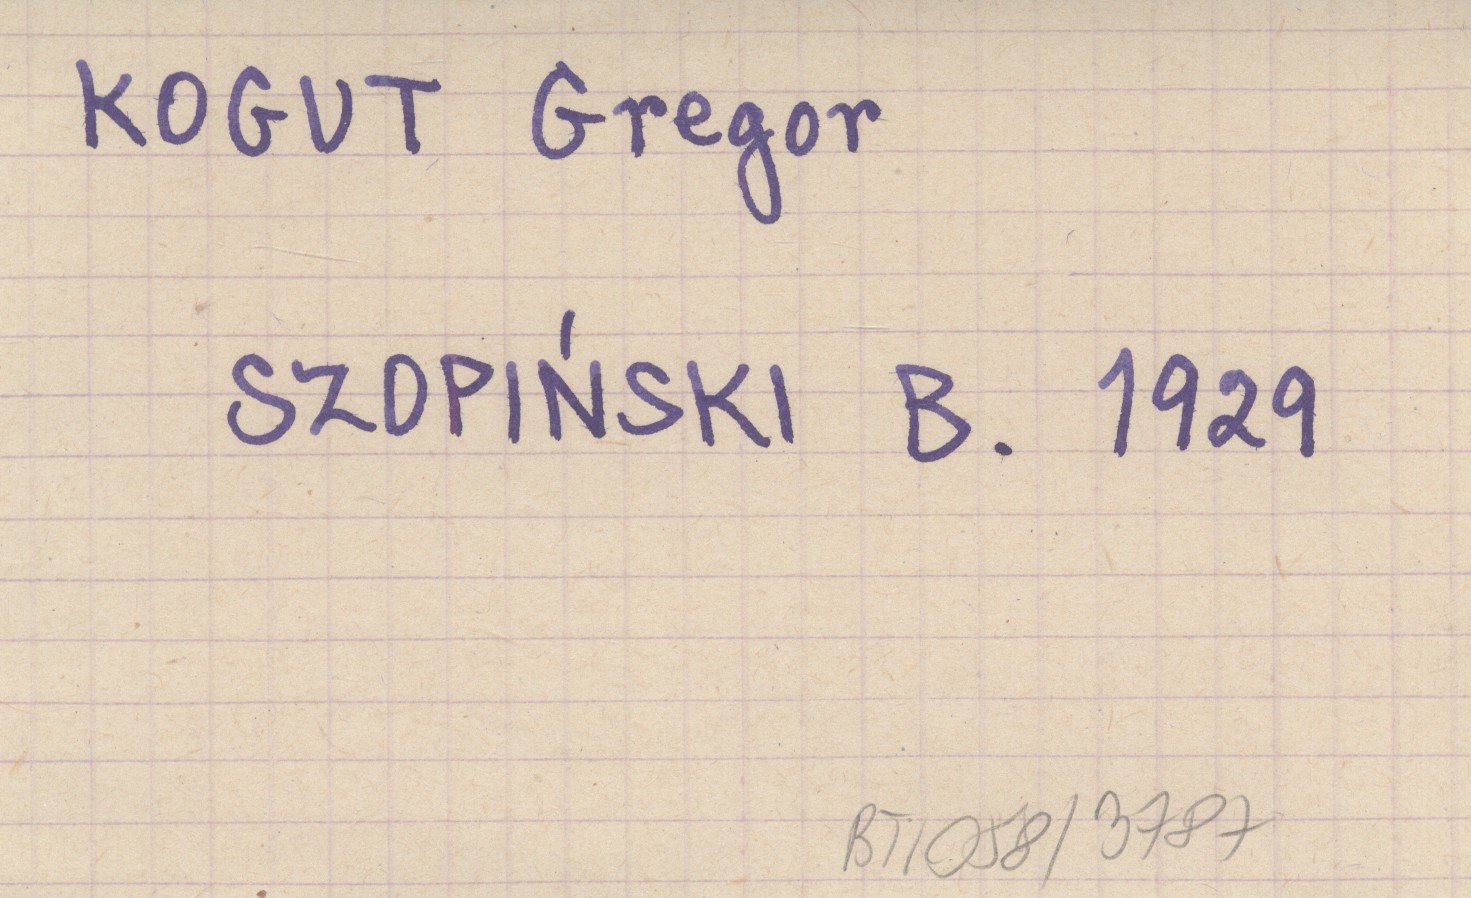 KOGUT Gregor
SZOPIŃSKI B. 1929
BT/058/3787